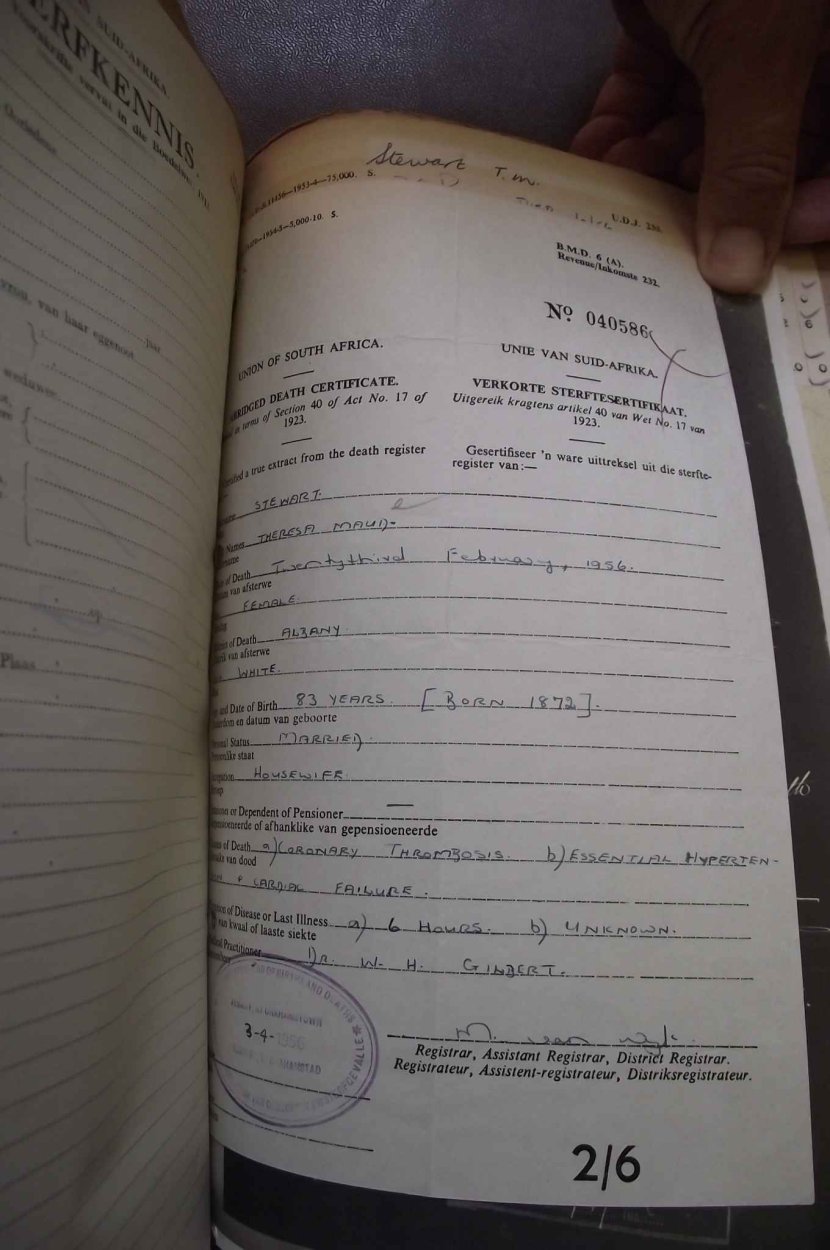 SUID-AFRIKA
ERFKENNIS.
vervat in die
jaar
van haar eggenoot
weduwee,
Plaas
Stewart T.M.
1953-4—75,000. S.
U.D.J.
1954-5—5,000-10. S.
B.M.D. 6 (A).
Revenue/Inkomste 232.
No 040586
UNION OF SOUTH AFRICA.
UNIE VAN SUID-AFRIKA.
DEATH CERTIFICATE.
in terms of Section 40 of Act No. 17 of
1923.
VERKORTE STERFTESERTIFIKAAT.
Uitgereik kragtens artikel 40 van Wet No. 17 van
1923.
a true extract from the death register
Gesertifiseer 'n ware uittreksel uit die sterfte-
register van:—
STEWART.
Names THERESA MAUD.
of Death Twentythird February, 1956.
van afsterwe
FEMALE.
of Death ALBANY.
van afsterwe
WHITE.
and Date of Birth 83 YEARS. [BORN 1872].
en datum van geboorte
Status MARRIED.
staat
HOUSEWIFE.
or Dependent of Pensioner —
of afhanklike van gepensioeneerde
of Death a) CORONARY THROMBOSIS. b) ESSENTIAL HYPERTEN-
van dood
& CARDIAC FAILURE.
of Disease or Last Illness a) 6 HOURS. b) UNKNOWN.
van kwaal of laaste siekte
Practitioner DR. W. H. GILBERT.
OF BIRTHS AND DEATHS
3-4-1956
M. van Wyk.
Registrar, Assistant Registrar, District Registrar.
Registrateur, Assistent-registrateur, Distriksregistrateur.
2/6